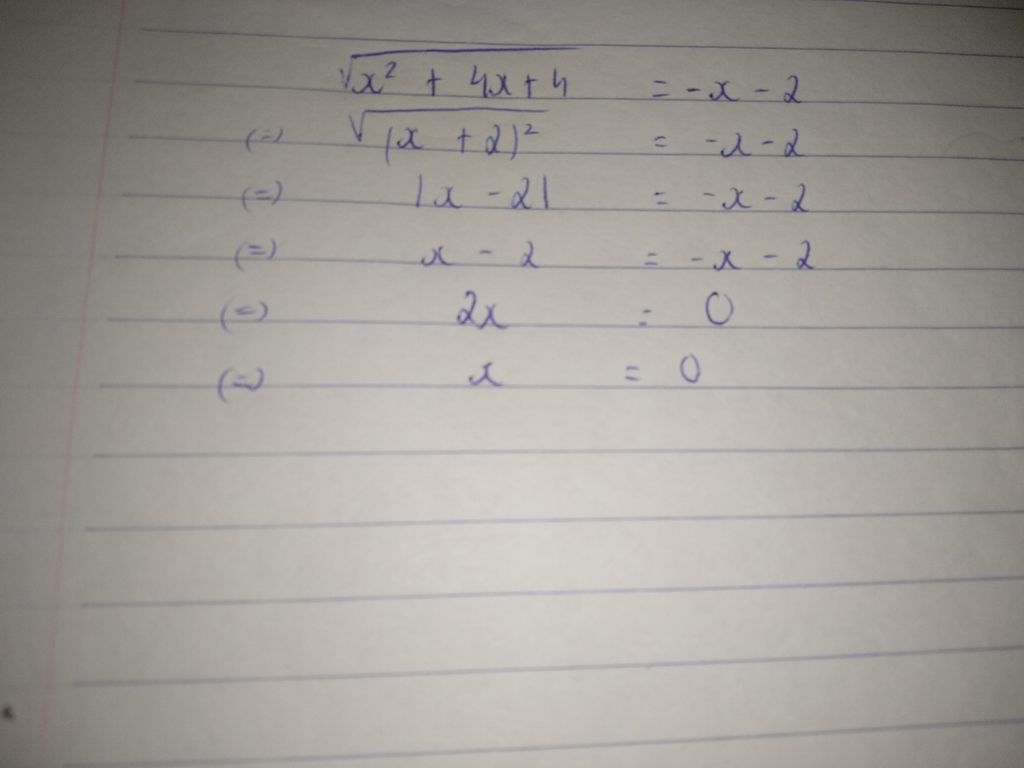 √(x² + 4x + 4) = -x - 2
(=) √((x + 2)²) = -x - 2
(=) |x - 2| = -x - 2
(=) x - 2 = -x - 2
(=) 2x = 0
(=) x = 0